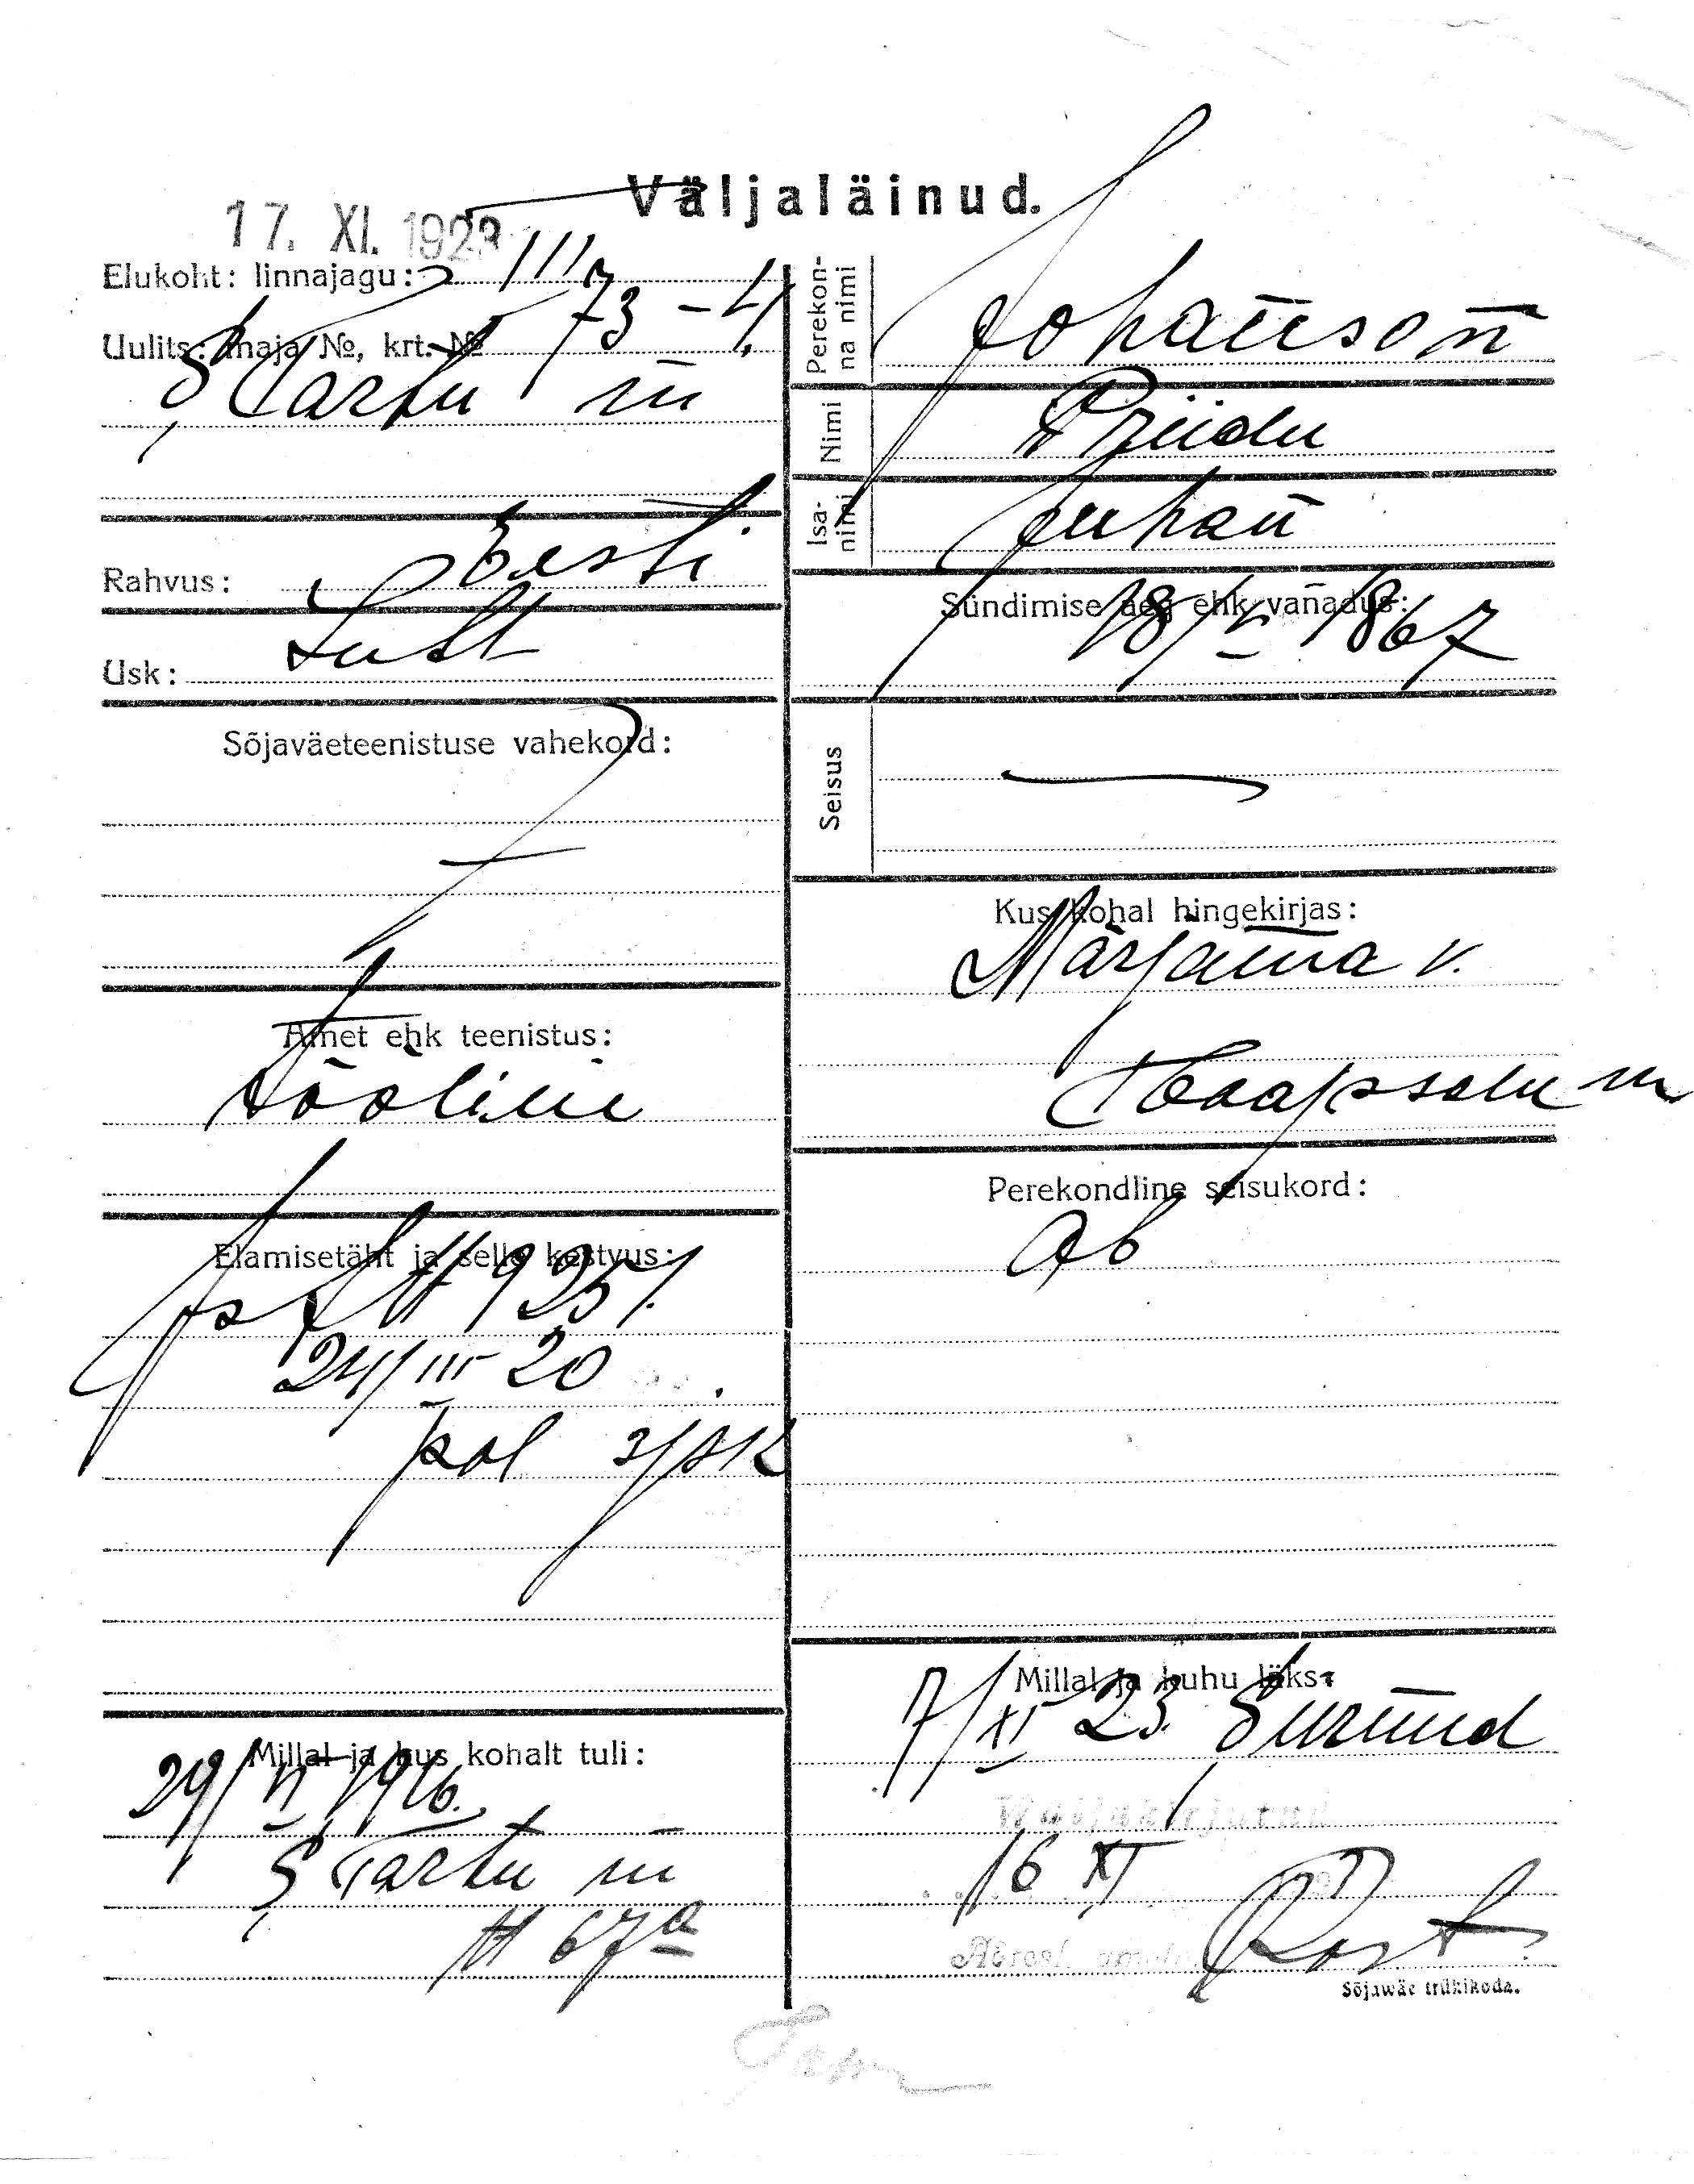 Väljaläinud.
17. XI. 1923
Elukoht: linnajagu: III
Uulits: maja №, krt. № 73 - 4
S. Tartu m
Rahvus: Eesti
Usk: Luth
Sõjaväeteenistuse vahekord:
Amet ehk teenistus:
tööline
Elamisetäht ja selle kestvus:
№ 925/.
24/III 20
pol 3/jsk
Millal ja kus kohalt tuli:
29/VI 1916.
S. Tartu m
№ 67a
Perekonna nimi Johanson
Nimi Priidu
Isanimi Juhan
Sündimise aeg ehk vanadus:
18/V 1867
Seisus
Kus kohal hingekirjas:
Märjama v.
Haapsalu m
Perekondline seisukord:
Ab
Millal ja kuhu läks:
7/XI 23. Surnud
Wäljakirjutud
16 XI
Adressl.
Sõjawäe trükikoda.